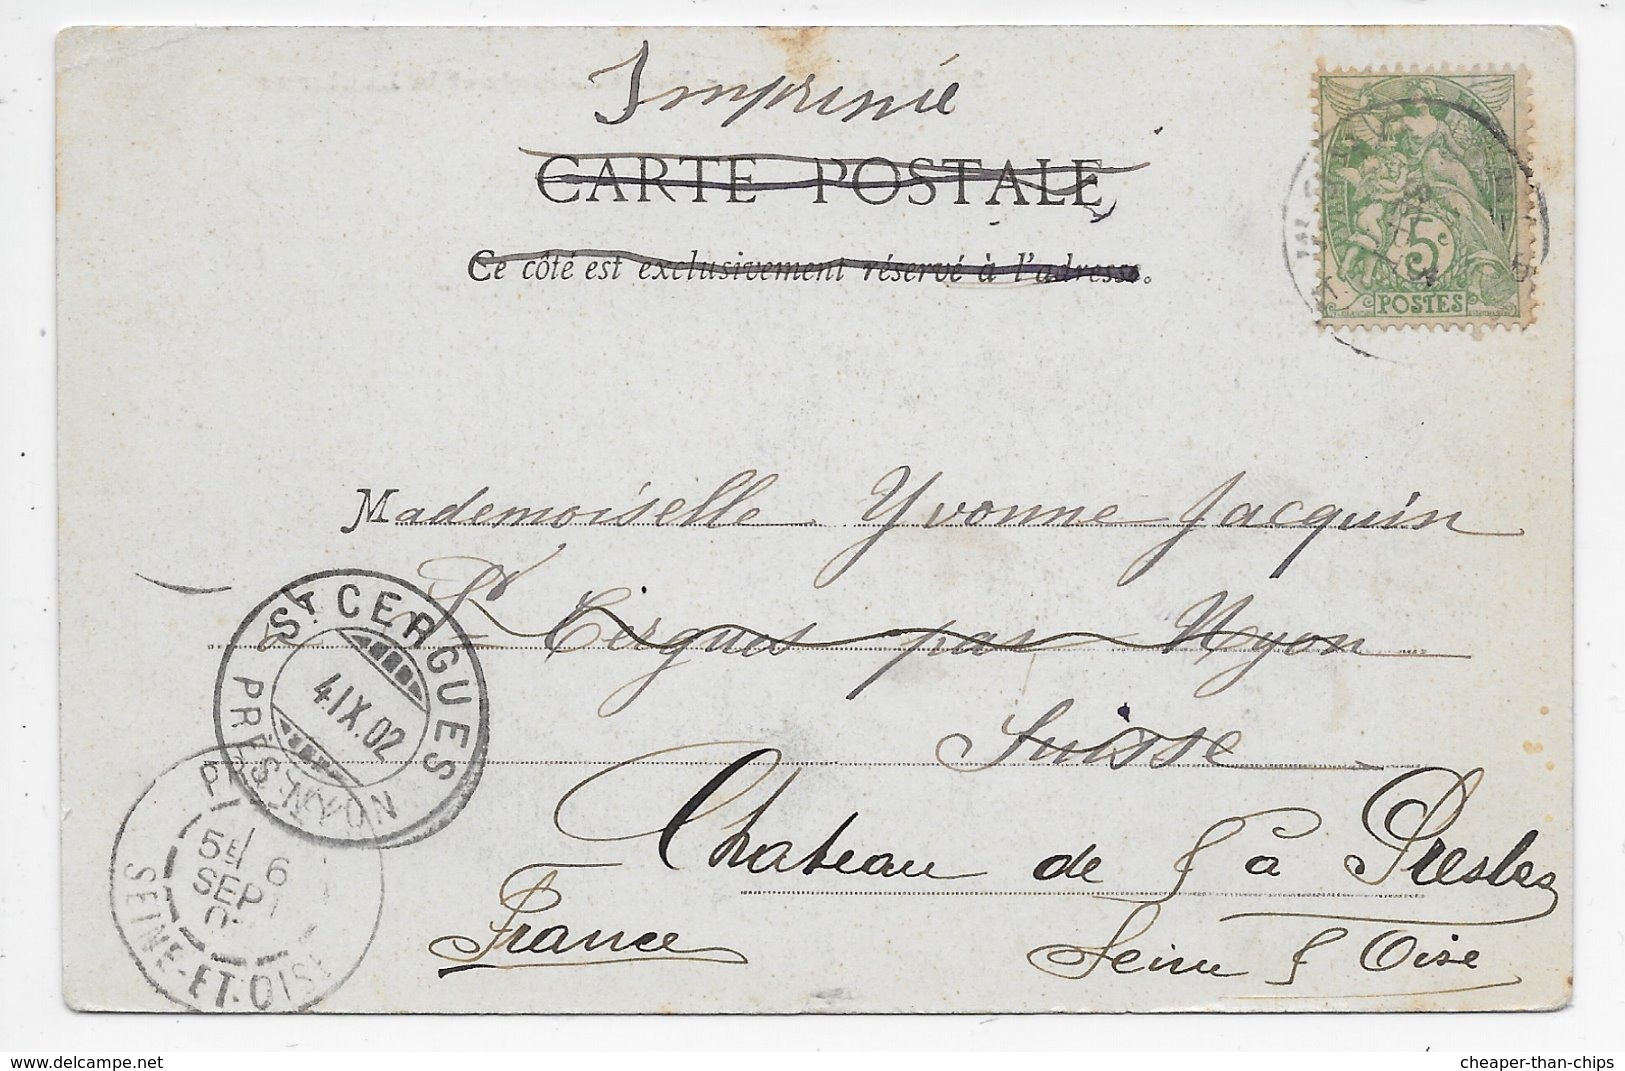 Imprimé
CARTE POSTALE
Ce côté est exclusivement réservé à l'adresse.
5c
POSTES
Mademoiselle Yvonne Jacquin
St Cergues par Nyon
Suisse
Chateau de Presles
France
Seine & Oise
ST CERGUES
4.IX.02
PRÈS NYON
5E 6
SEPT
SEINE-ET-OISE
cheaper-than-chips